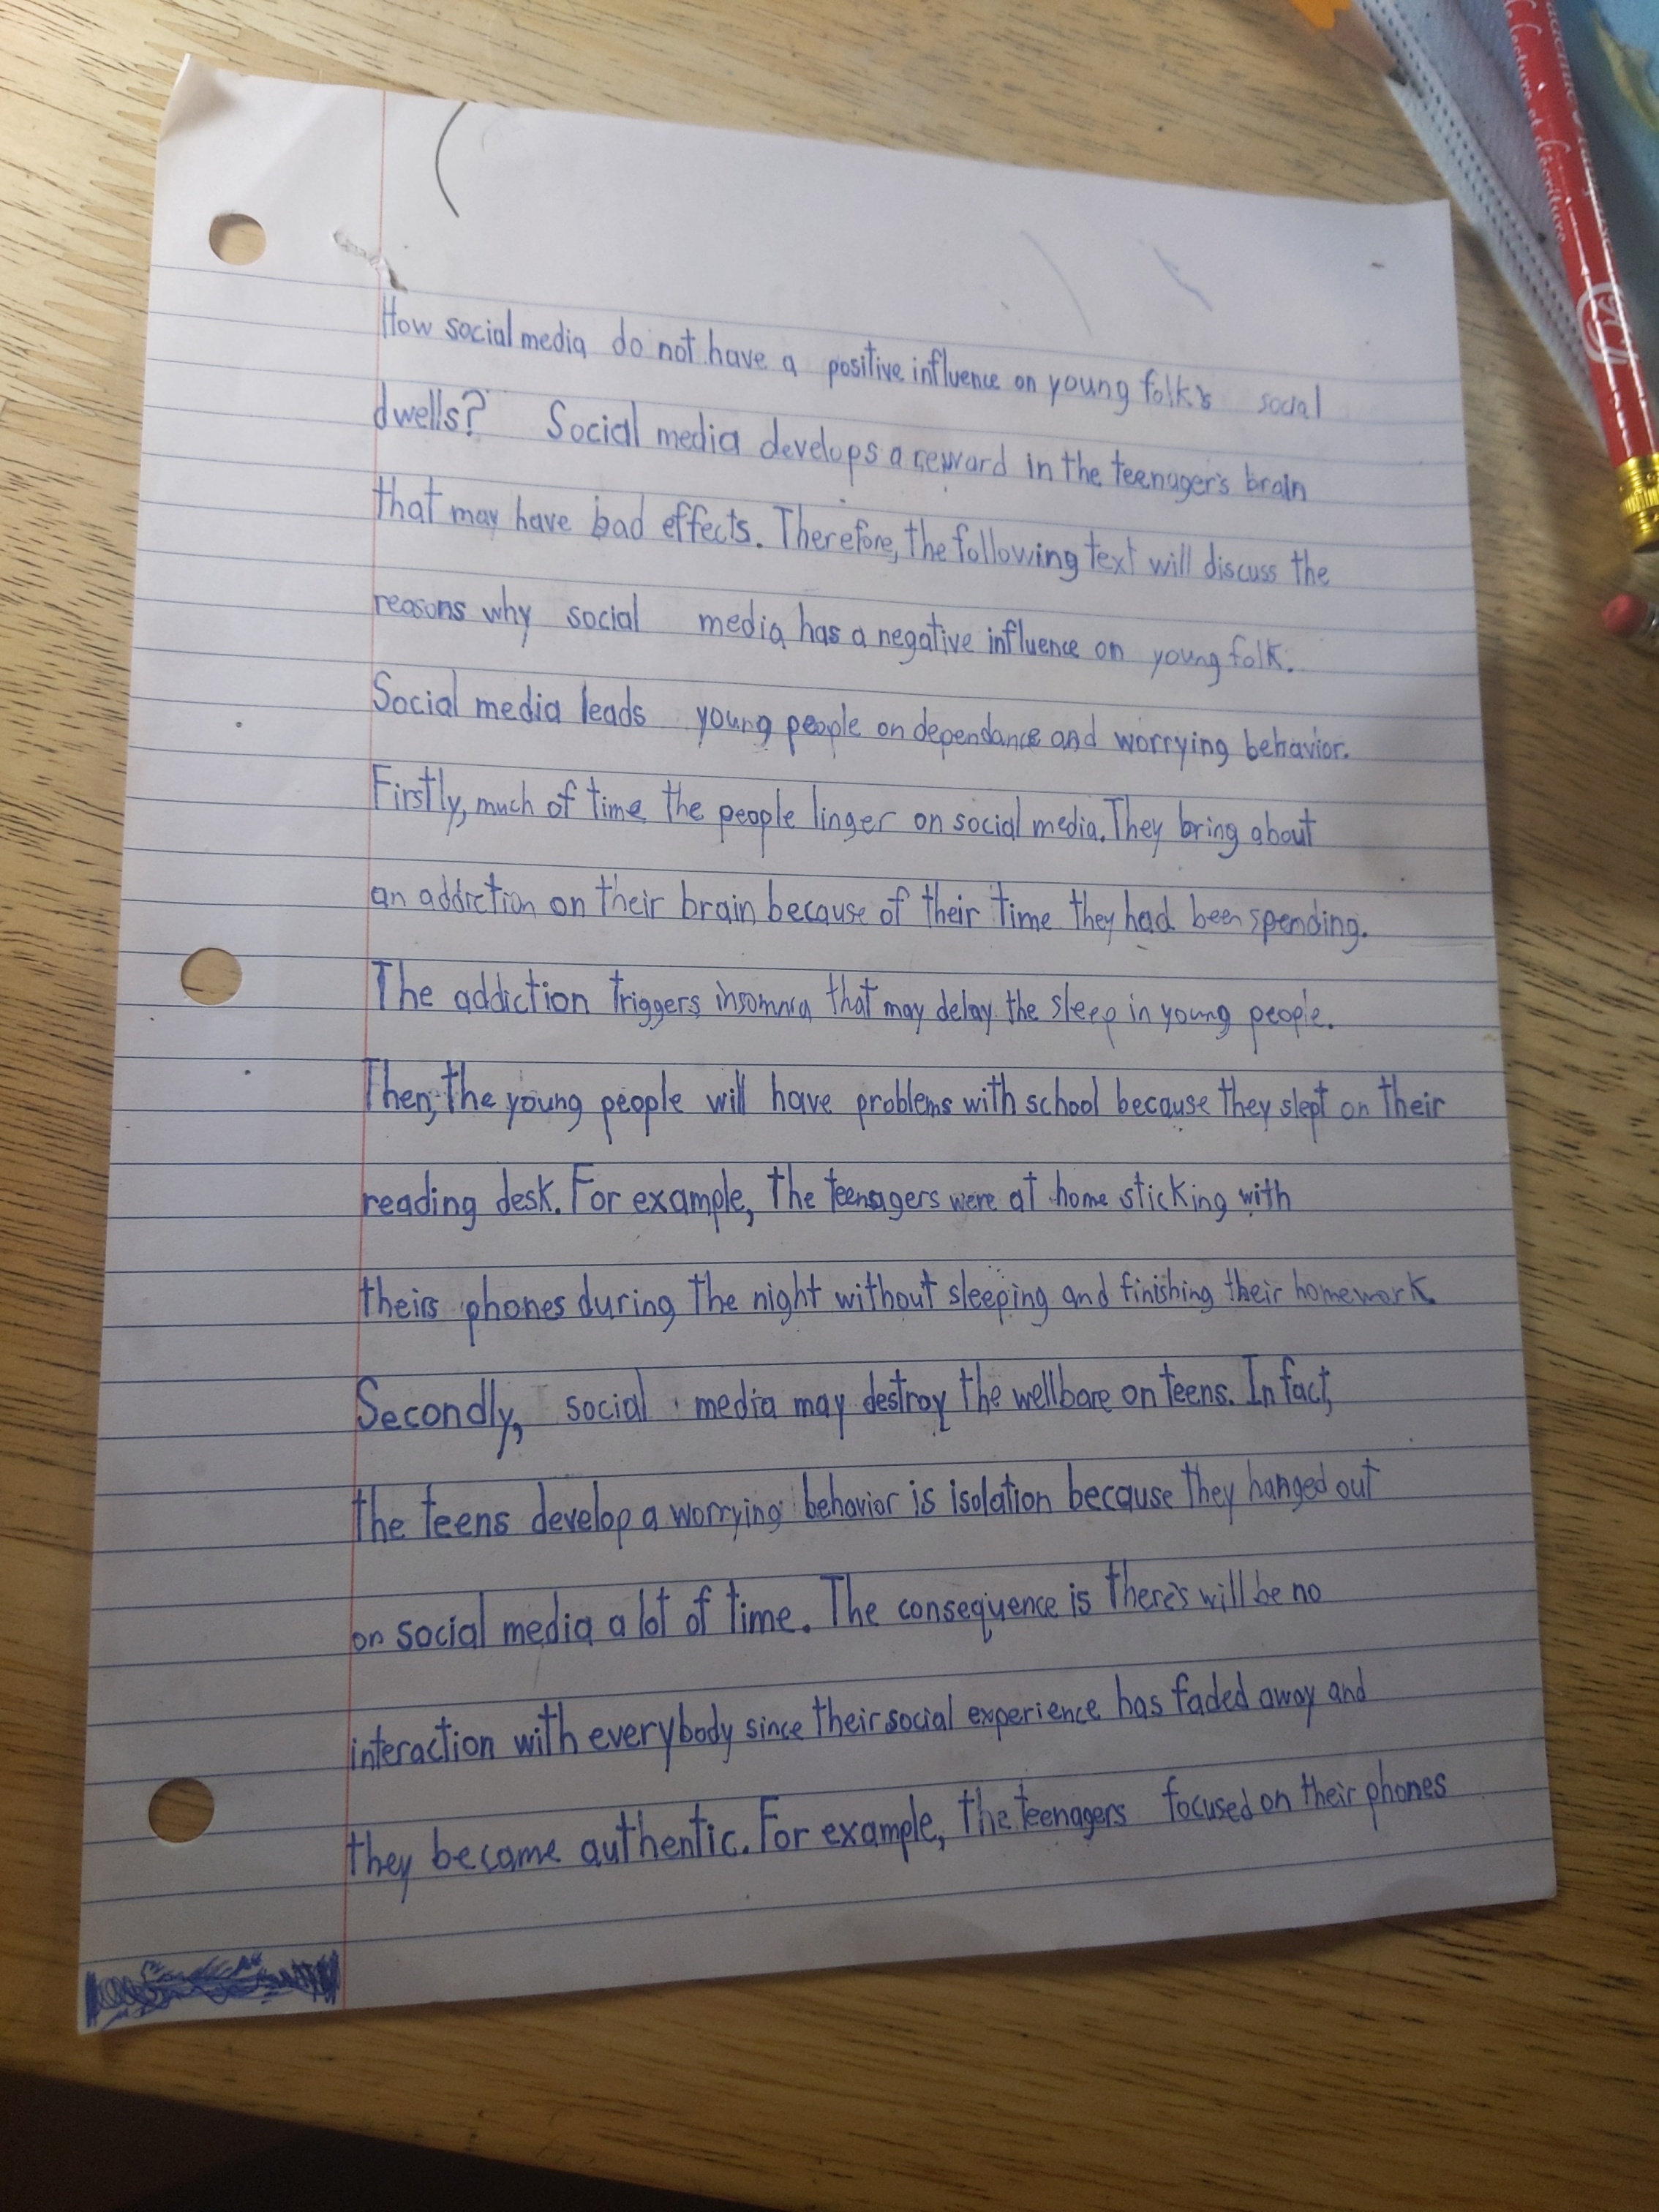 How social media do not have a positive influence on young folk's social
dwells? Social media develops a reward in the teenager's brain
that may have bad effects. Therefore, the following text will discuss the
reasons why social media has a negative influence on young folk.
Social media leads young people on dependance and worrying behavior.
Firstly, much of time the people linger on social media. They bring about
an addiction on their brain because of their time they had been spending.
The addiction triggers insomnia that may delay the sleep in young people.
Then, the young people will have problems with school because they slept on their
reading desk. For example, the teenagers were at home sticking with
theirs phones during the night without sleeping and finishing their homework.
Secondly, social media may destroy the wellbare on teens. In fact,
the teens develop a worrying behavior is isolation because they hanged out
on social media a lot of time. The consequence is there's will be no
interaction with everybody since their social experience has faded away and
they became authentic. For example, the teenagers focused on their phones